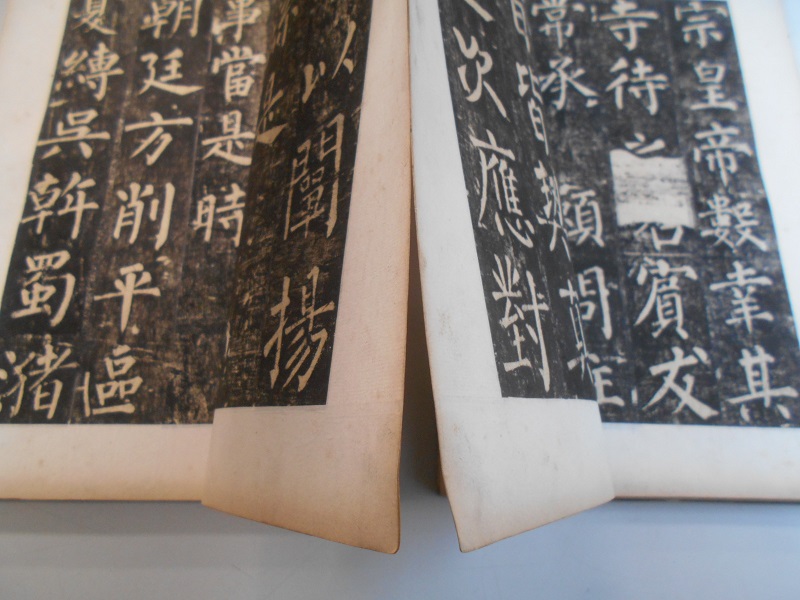 宗皇帝數幸其
寺待之若賓友
常承顧問注
旨皆契真
造次應對
以闡揚
是
事當是時
朝廷方削平區
夏縛吳斡蜀瀦